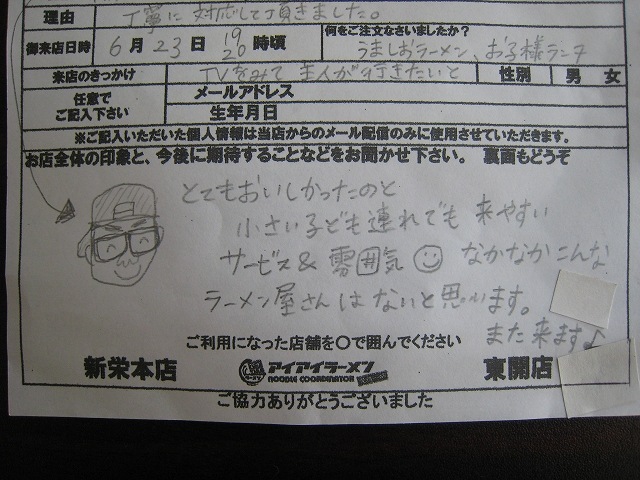 理由 丁寧に対応して頂きました。
御来店日時 6月23日 19 20 時頃 何をご注文なさいましたか? うましおラーメン、お子様ランチ
来店のきっかけ TVをみて主人が行きたいと 性別 男 女
任意でご記入下さい メールアドレス
生年月日
※ご記入いただいた個人情報は当店からのメール配信のみに使用させていただきます。
お店全体の印象と、今後に期待することなどをお聞かせ下さい。 裏面もどうぞ
とてもおいしかったのと
小さい子ども連れでも来やすい
サービス&雰囲気 なかなかこんな
ラーメン屋さんはないと思います。
また来ます♪
ご利用になった店舗を○で囲んでください
新栄本店 アイアイラーメン 東開店
NOODLE COORDINATOR
ご協力ありがとうございました